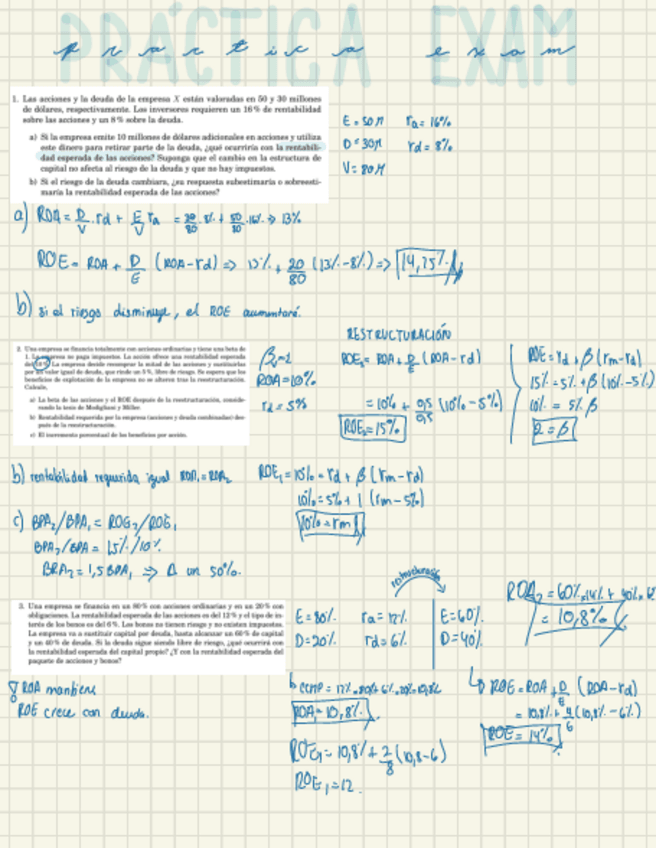 PRÁCTICA EXAM
practica exam
1. Las acciones y la deuda de la empresa X están valoradas en 50 y 30 millones
de dólares, respectivamente. Los inversores requieren un 16% de rentabilidad
sobre las acciones y un 8% sobre la deuda.
a) Si la empresa emite 10 millones de dólares adicionales en acciones y utiliza
este dinero para retirar parte de la deuda, ¿qué ocurriría con la rentabili-
dad esperada de las acciones? Suponga que el cambio en la estructura de
capital no afecta al riesgo de la deuda y que no hay impuestos.
b) Si el riesgo de la deuda cambiara, ¿su respuesta subestimaría o sobreesti-
maría la rentabilidad esperada de las acciones?
E = 50M ra = 16%
D = 30M rd = 8%
V = 80M
a) ROA = D/V · rd + E/V ra = 30/80 · 8% + 50/80 · 16% => 13%
ROE = ROA + D/E (ROA - rd) => 13% + 20/80 (13% - 8%) => 14,25%
b) si el riesgo disminuye, el ROE aumentará.
2. Una empresa se financia totalmente con acciones ordinarias y tiene una beta de
1. La empresa no paga impuestos. La acción ofrece una rentabilidad esperada
del 10%. La empresa decide recomprar la mitad de las acciones y sustituirlas
por un valor igual de deuda, que rinde un 5%, libre de riesgo. Se espera que los
beneficios de explotación de la empresa no se alteren tras la reestructuración.
Calcule,
a) La beta de las acciones y el ROE después de la reestructuración, conside-
rando la tesis de Modigliani y Miller.
b) Rentabilidad requerida por la empresa (acciones y deuda combinadas) des-
pués de la reestructuración.
c) El incremento porcentual de los beneficios por acción.
β = 1
ROA = 10%
rd = 5%
RESTRUCTURACIÓN
ROE2 = ROA + D/E (ROA - rd)
= 10% + 0,5/0,5 (10% - 5%)
ROE2 = 15%
ROE = rd + β (rm - rd)
15% = 5% + β (10% - 5%)
10% = 5% β
2 = β
b) rentabilidad requerida igual ROA1 = ROA2
ROE1 = 10% = rd + β (rm - rd)
10% = 5% + 1 (rm - 5%)
10% = rm
c) BPA2/BPA1 = ROE2/ROE1
BPA2/BPA = 15%/10%
BPA2 = 1,5 BPA1 => Δ un 50%.
3. Una empresa se financia en un 80% con acciones ordinarias y en un 20% con
obligaciones. La rentabilidad esperada de las acciones es del 12% y el tipo de in-
terés de los bonos es del 6%. Los bonos no tienen riesgo y no existen impuestos.
La empresa va a sustituir capital por deuda, hasta alcanzar un 60% de capital
y un 40% de deuda. Si la deuda sigue siendo libre de riesgo, ¿qué ocurrirá con
la rentabilidad esperada del capital propio? ¿Y con la rentabilidad esperada del
paquete de acciones y bonos?
restructuración
E = 80% ra = 12% E = 60%
D = 20% rd = 6% D = 40%
ROA2 = 60% · 14% + 40% · 6
= 10,8%
ROA mantiene
ROE crece con deuda.
CCMP = 12% · 80% + 6% · 20% = 10,8%
ROA1 = 10,8%
ROE1 = 10,8% + 2/8 (10,8 - 6)
ROE1 = 12.
ROE = ROA + D/E (ROA - rd)
= 10,8% + 4/6 (10,8% - 6%)
ROE = 14%